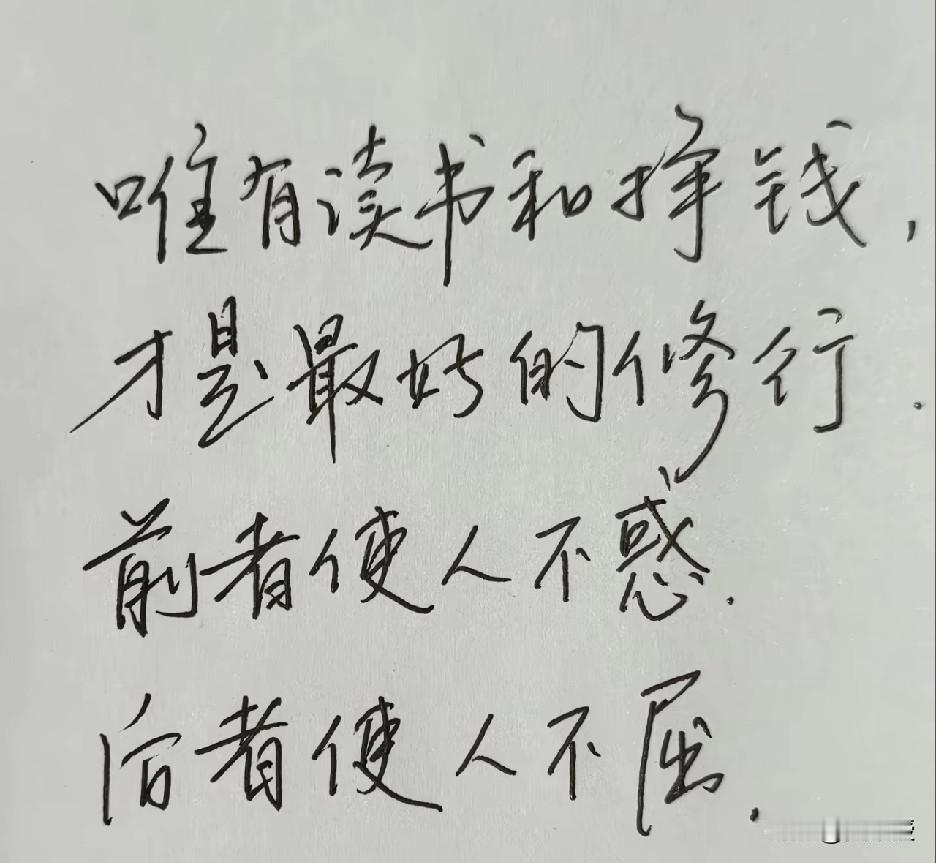 唯有读书和挣钱,
才是最好的修行.
前者使人不惑.
后者使人不屈.